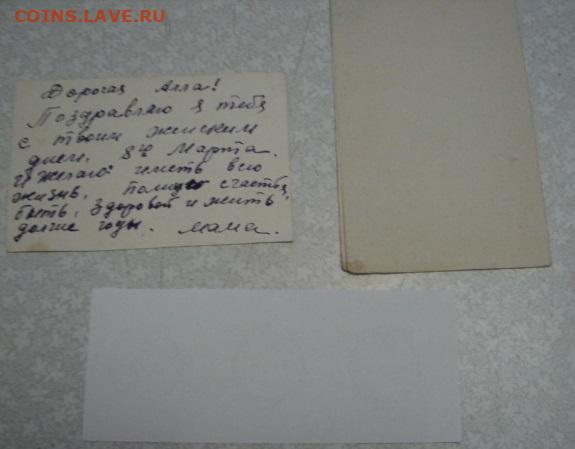 COINS.LAVE.RU
Дорогая Алла!
Поздравляю я тебя
с твоим женским
днем, 8ое Марта.
И желаю иметь всю
жизнь, полное счастье,
быть, здоровой и жить
долгие годы. мама.